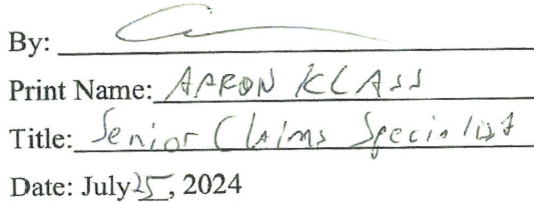 By:
Print Name: AARON KLASS
Title: Senior Claims Specialist
Date: July 25, 2024